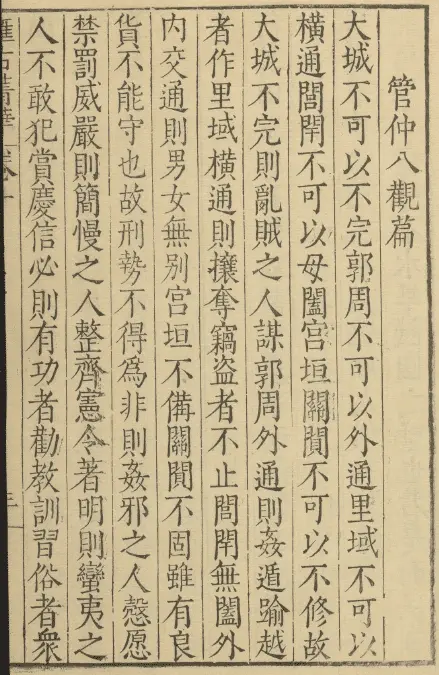 管仲八觀篇
大城不可以不完郭周不可以外通里域不可以
橫通閭閈不可以毋闔宮垣關閴不可以不修故
大城不完則亂賊之人謀郭周外通則姦遁踰越
者作里域橫通則攘奪竊盜者不止閭閈無闔外
内交通則男女無别宮垣不備關閴不固雖有良
貨不能守也故刑勢不得爲非則姦邪之人慤愿
禁罰威嚴則簡慢之人整齊憲令著明則蠻夷之
人不敢犯賞慶信必則有功者勸教訓習俗者衆